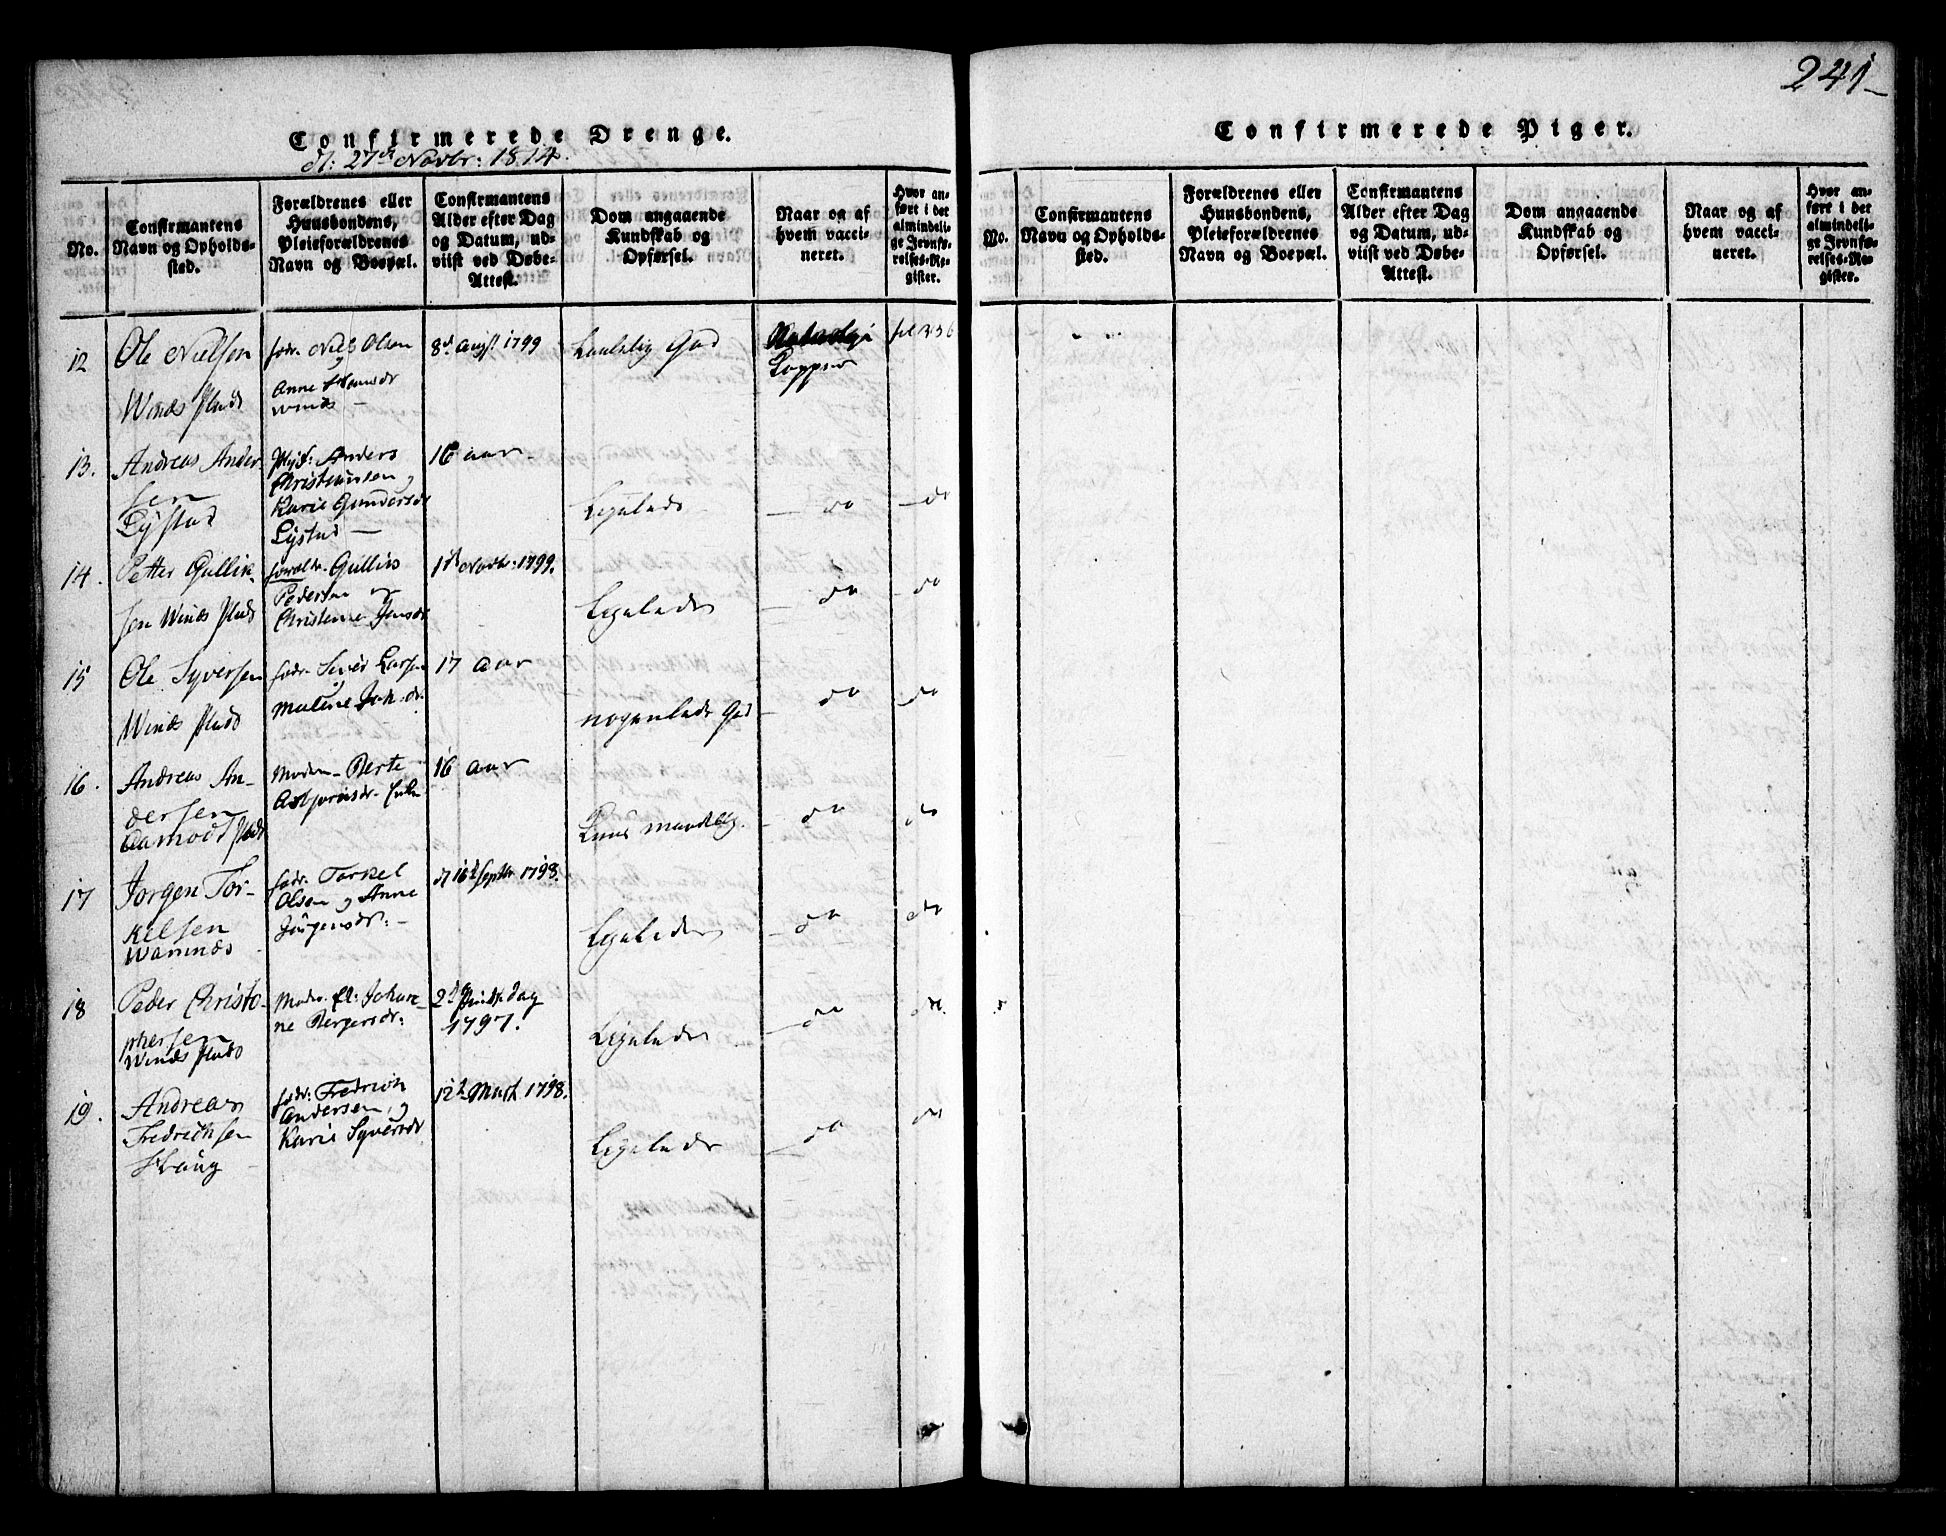 241
Confirmerede Drenge.
d: 27de Novbr: 1814.
No.
Confirmantens
Navn og Opholds-
sted.
Forældrenes eller
Huusbondens,
Pleieforældrenes
Navn og Boepæl.
Confirmantens
Alder efter Dag
og Datum, ud-
viist ved Døbe-
Attest.
Dom angaaende
Kundskab og
Opførsel.
Naar og af
hvem vacci-
neret.
Hvor an-
ført i det
almindeli-
ge Jevnfø-
relses-Re-
gister.
12
Ole Nielsen
Winds Plads
fodr. Niels Olsen
Anne
Winds
8d Augst 1799
God
Kopper
fol 236
13.
Andreas Ander-
sen
Lystad
Anders
Christiansen
Karie Gundersdr
Lystad
16 aar
Ligeleds
do
do
14.
Petter Gullik-
sen Winds Plads
Gullik
Pedersen og
Christenne Jensdr
1d Novbr: 1799.
Ligeleds
do
do
15
Ole Syversen
Winds Plads
fodr. Siver Larsen
Malene Joh.dr.
17 Aar
nogenleds God
do
do
16.
Andreas An-
dersen
Aamodt Plads
Moder Berte
Asbjørnsdr.
16 Aar
do
do
17
Jørgen Tor-
kelsen
Wamnæs
fodr. Torkel
Olsen og Anne
Jørgensdr:
d 16d Septbr 1798.
Ligeleds
do
do
18
Peder Christo-
phersen
Winds Plads
Moder Johan-
ne Bergersdr:
2d Pintsedag
1797.
Ligeleds
do
do.
19.
Andreas
Fredrichsen
Houg
fodr: Fredrich
Andersen, og
Karie Syversdr
12d Marts 1798.
Ligeleds
do
do
Confirmerede Piger.
No.
Confirmantens
Navn og Opholds-
sted.
Forældrenes eller
Huusbondens,
Pleieforældrenes
Navn og Boepæl.
Confirmantens
Alder efter Dag
og Datum, ud-
viist ved Døbe-
Attest.
Dom angaaende
Kundskab og
Opførsel.
Naar og af
hvem vacci-
neret.
Hvor an-
ført i det
almindeli-
ge Jevnfø-
relses-Re-
gister.